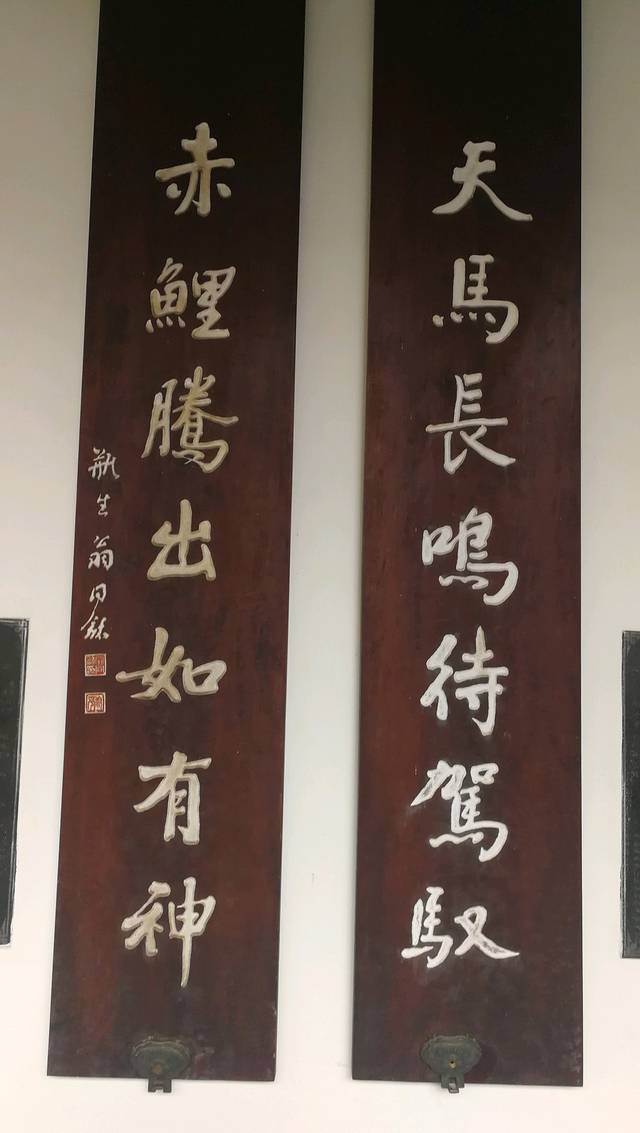 天馬長鳴待駕馭
赤鯉騰出如有神
瓶生翁同龢